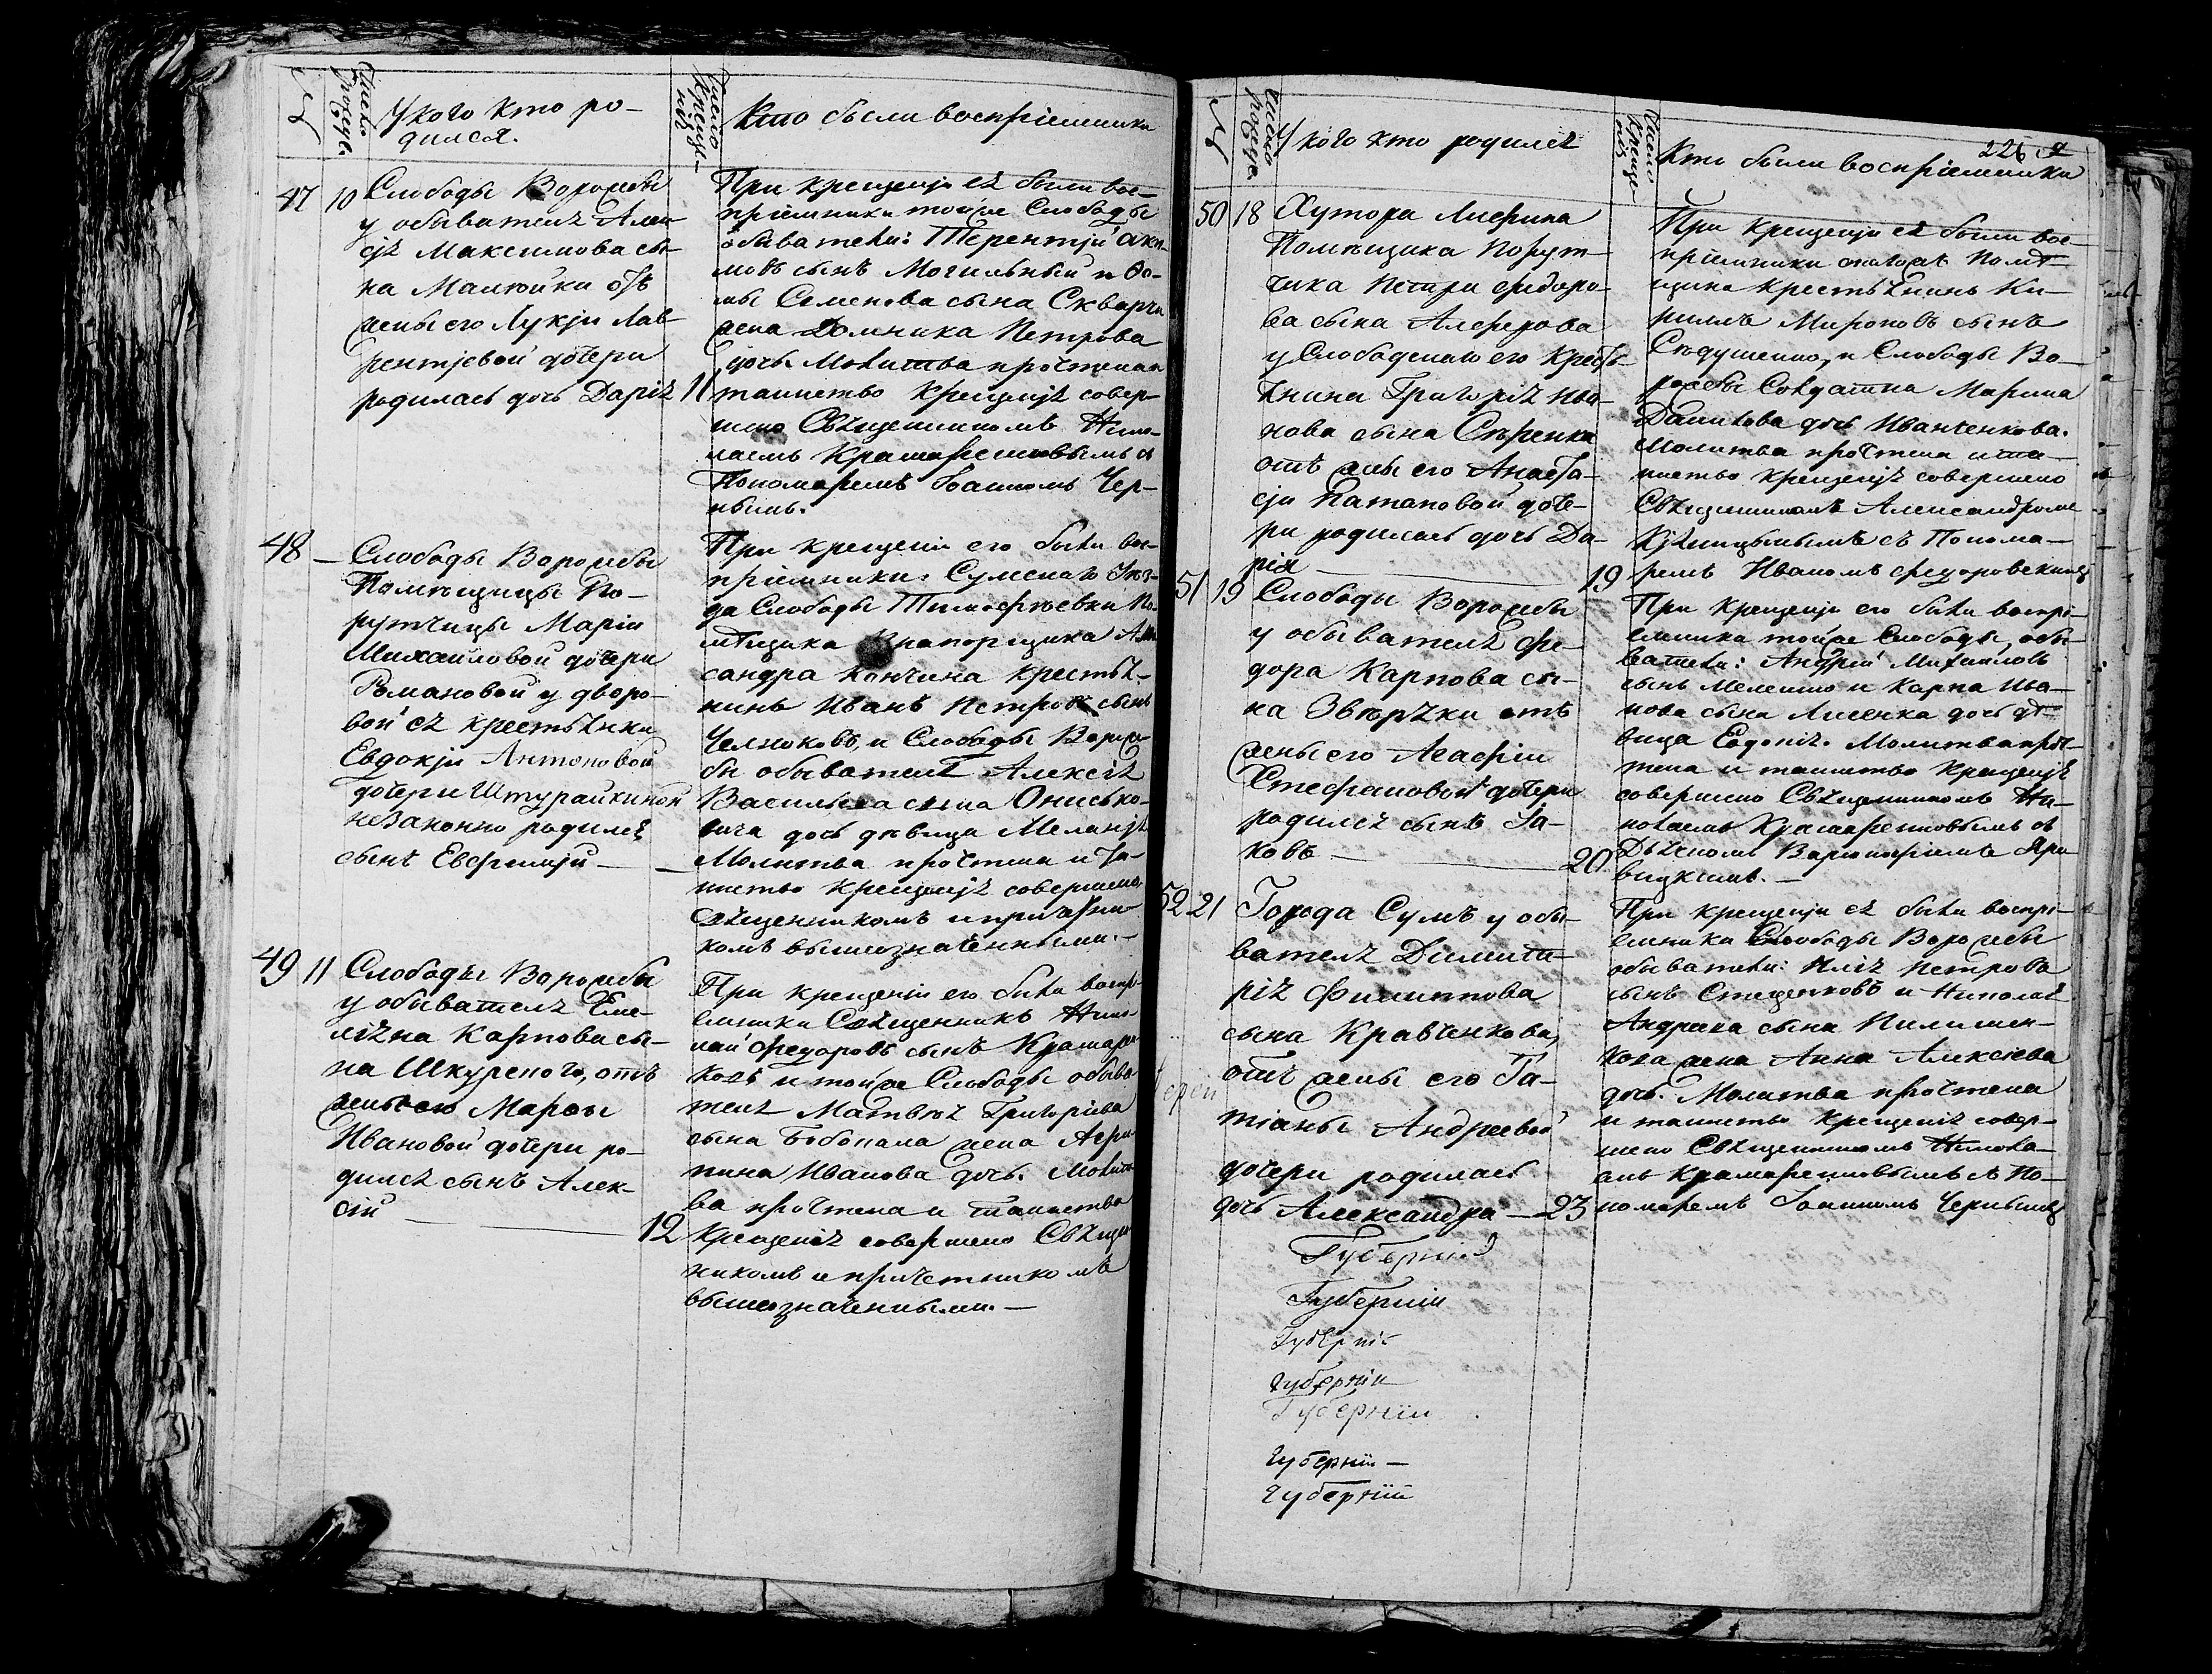 №
Число рожде.
У кого кто ро-
дился.
Число Креще-
нія
Кто были воспріемники
47
10
Слободы Ворожбы
у обывателя Алек
сѣя Максимова сы-
на Малюйки отъ
жены его Лукіи Лав-
рентіевой дочери
родилась дочь Дарія
11
При крещеніи ея были вос-
пріемники тойже Слободы
обыватели: Терентій Аки-
мовъ сынъ Могильный и Ѳо-
мы Семенова сына Скварчи
жена Домника Петрова
дочь. Молитва прочтена и
таинство крещенія совер-
шено Священникомъ Нико-
лаемъ Крамаренковымъ съ
Пономаремъ Іоанномъ Чер-
нымъ.
48
—
Слободы Ворожбы
Помѣщицы По-
ручицы Маріи
Михайловой дочери
Романовой у дворо-
вой ея крестьянки
Евдокіи Антоновой
дочери Штурайкиной
незаконно родился
сынъ Евфимій —
—
При крещеніи его были вос-
пріемники: Сумскаго Уѣз-
да Слободы Тимофѣевки По-
мѣщика Прапорщика Алек
сандра Кончина крестья-
нинъ Иванъ Петровъ сынъ
Челноковъ, и Слободы Ворож
бы обывателя Алексѣя
Васильева сына Онисько-
вича дочь дѣвица Меланія
Молитва прочтена и та-
инство крещенія совершено,
Священникомъ и причетни-
комъ вышеозначенными. —
49
11
Слободы Ворожбы
у обывателя Еме-
ліяна Карпова сы-
на Шкуреного, отъ
жены его Марѳы
Ивановой дочери ро-
дился сынъ Алек-
сій —
12
При крещеніи его были воспрі-
емники Священникъ Нико-
лай Федоровъ сынъ Крамарен
ковъ и тойже Слободы обыва
теля Матвѣя Григоріева
сына Бобопала жена Агри-
пина Иванова дочь. Молит-
ва прочтена и таинство
Крещенія совершено Священ
никомъ и причетникомъ
вышеозначенными. —
№
Число рожде.
У кого кто родился
Число Креще-
нія
226
Кто были воспріемники
50
18
Хутора Лифина
Помѣщика Порут-
чика Петра Федоро-
ва сына Алферова
у Слободскаго его Кресть-
янина Григорія Ива-
нова сына Сѣренка
отъ жены его Анаста-
сіи Патаповой доче-
ри родилась дочь Да-
рія —
19
При крещеніи ея были вос-
пріемники тогожъ Помѣ-
щика крестьянинъ Ки-
риллъ Мироновъ сынъ
Сѣдушенко, и Слободы Во-
рожбы Солдатка Марина
Данилова дочь Иванченкова.
Молитва прочтена и та-
инство крещенія совершено
Священникомъ Александромъ
съ Понома-
ремъ Иваномъ Федоровскимъ
51
19
Слободы Ворожбы
у обывателя Фе-
дора Карпова сы-
на Звѣряки отъ
жены его Агафіи
Стефановой дочери
родился сынъ Іа-
ковъ —
20
При крещеніи его были воспрі-
емника тойже Слободы, обы-
ватели: Андрей Михайловъ
сынъ Мелешко и Карпа Ива-
нова сына Лисенка дочь дѣ-
вица Евдокія. Молитва проч-
тена и таинство Крещенія
совершено Священникомъ Ни-
колаемъ Крамаренковымъ съ
Дьячкомъ Варѳоломеемъ
52
21
Города Сумъ у обы-
вателя Димит-
рія Филиппова
сына Кравченкова,
отъ жены его Та-
тіаны Андреевой
дочери родилась
дочь Александра —
23
При крещеніи ея были воспрі-
емника Слободы Ворожбы
обыватели: Илія Петровъ
сынъ Стеценковъ и Николая
Андреева сына Пилипен-
кова жена Анна Алексіева
дочь. Молитва прочтена
и таинство Крещенія совер-
шено Священникомъ Никола-
емъ Крамаренковымъ съ По-
номаремъ Іоанномъ Чернымъ
Губерніи
Губерніи
Губерніи
Губерніи
Губерніи
Губерніи —
Губерніи